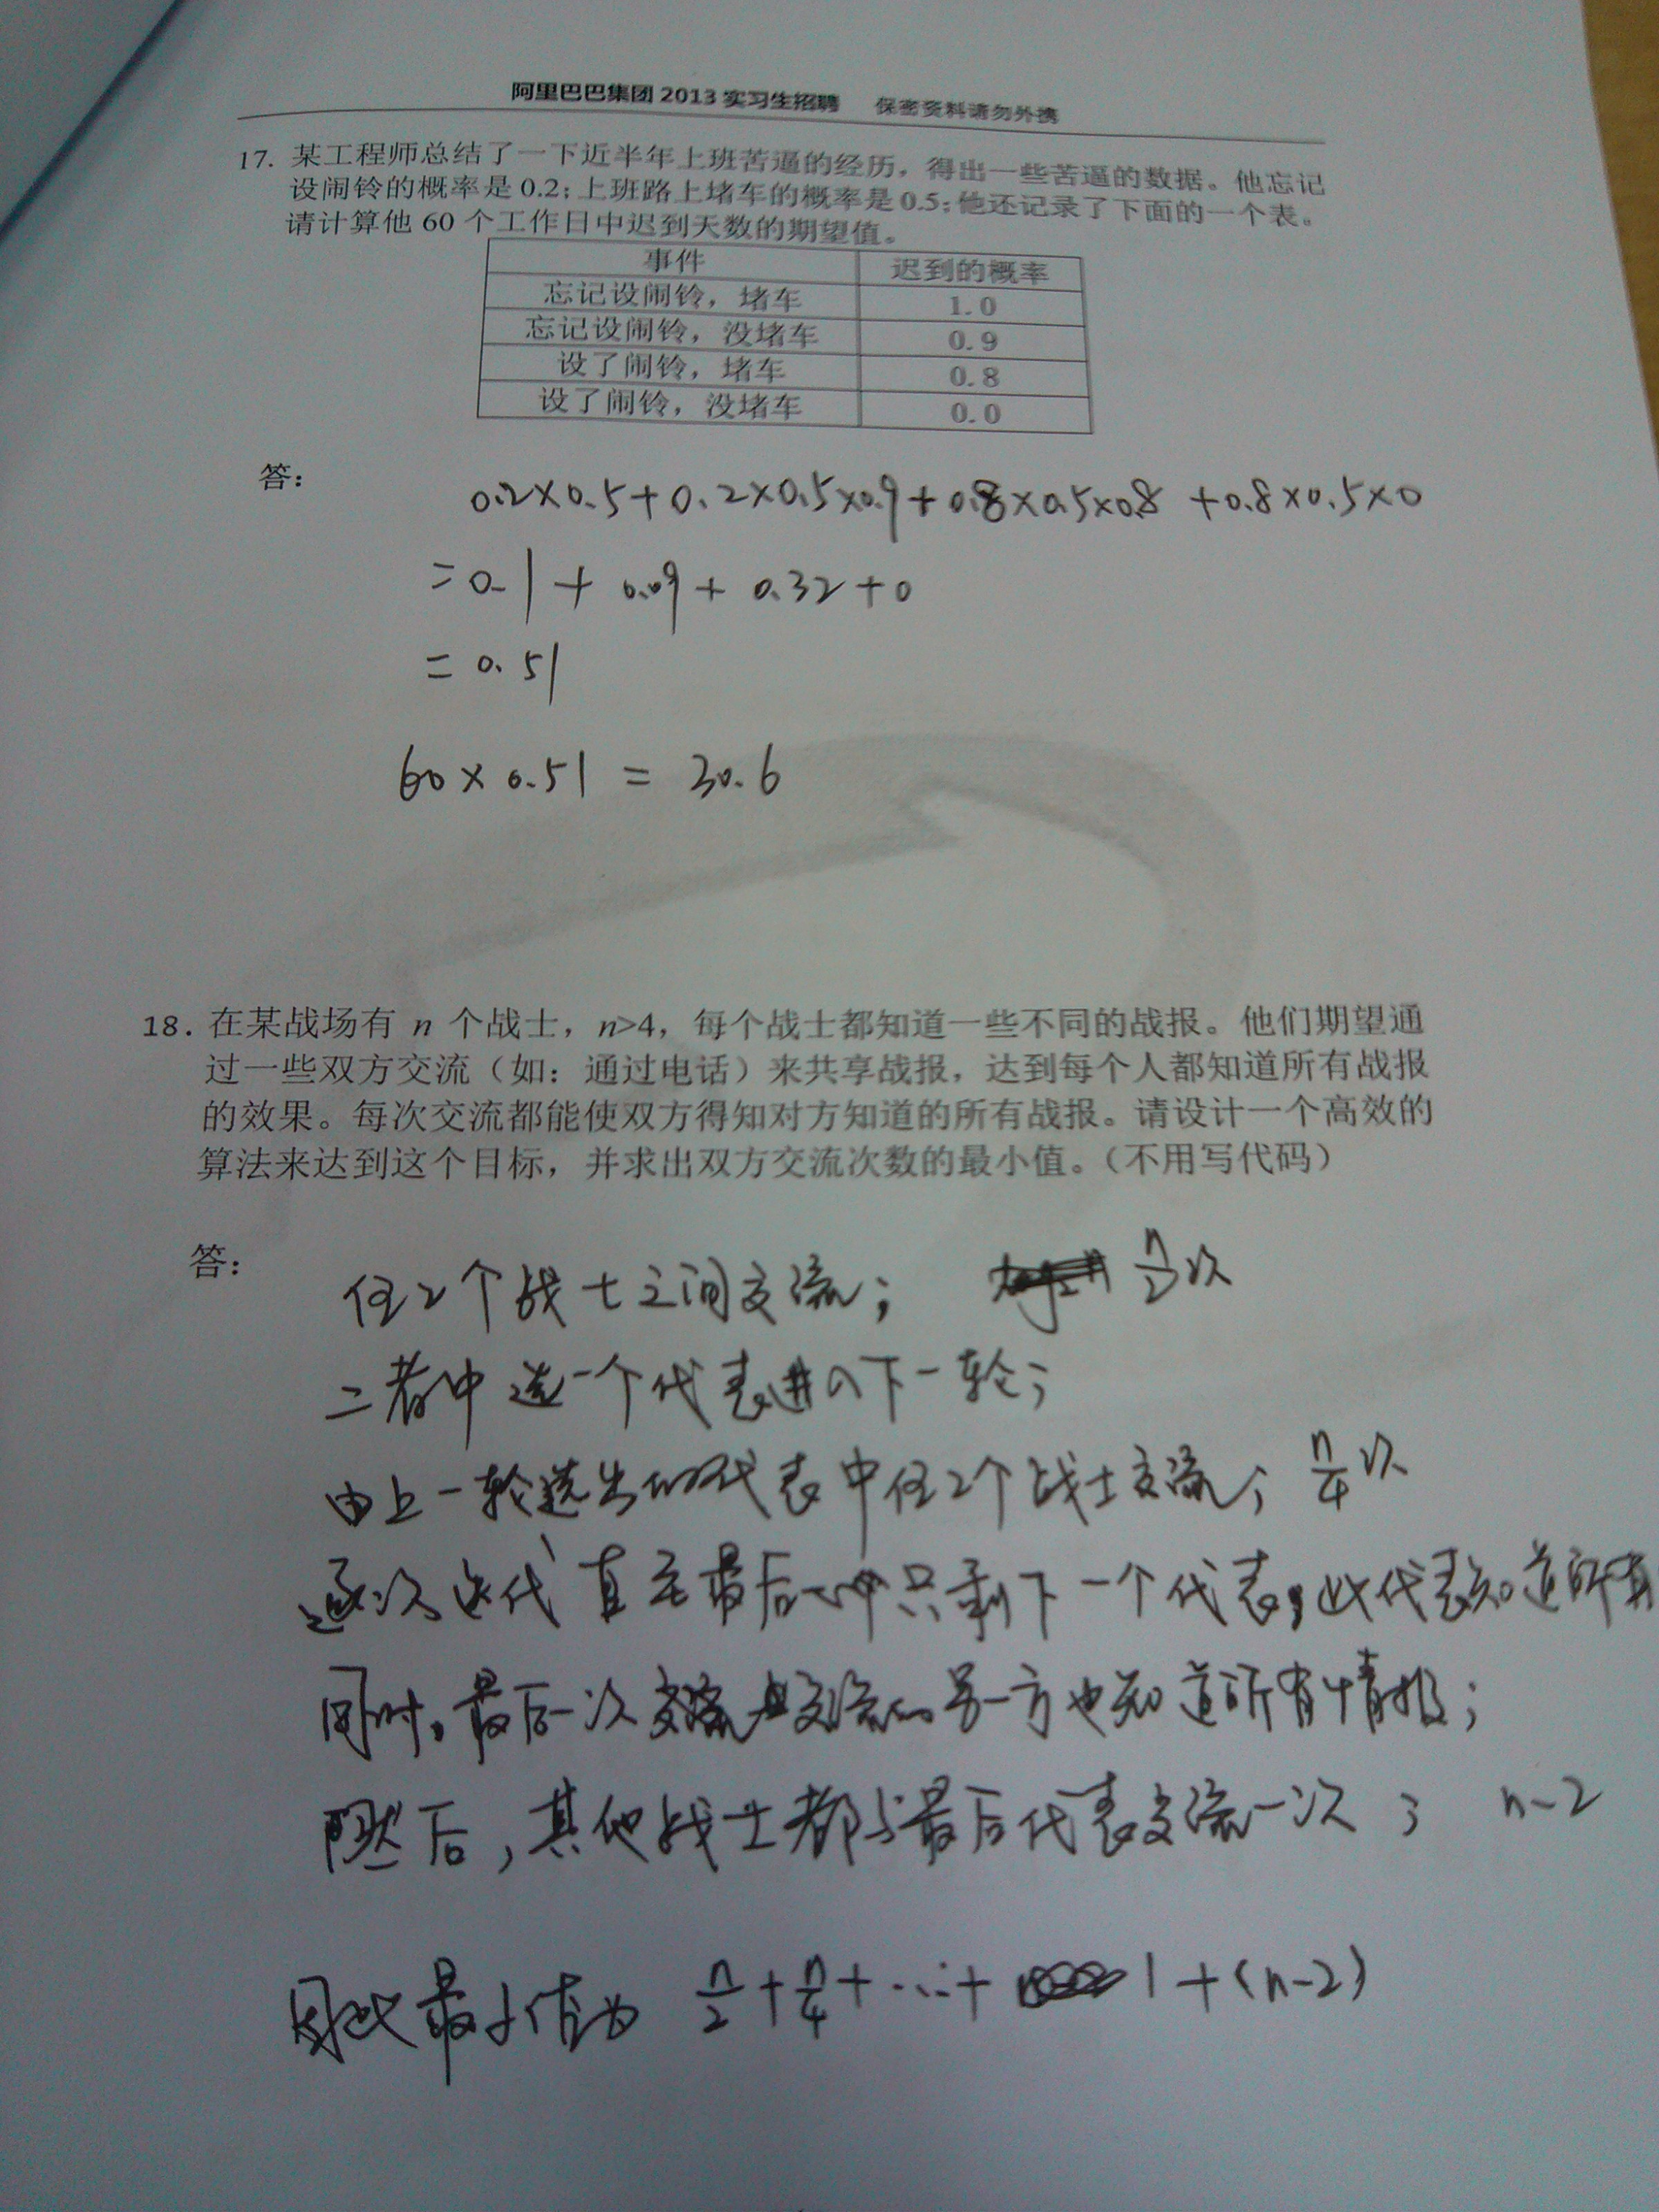 阿里巴巴集团 2013 实习生招聘 保密资料请勿外携
17. 某工程师总结了一下近半年上班苦逼的经历，得出一些苦逼的数据。他忘记
设闹铃的概率是 0.2；上班路上堵车的概率是 0.5；他还记录了下面的一个表。
请计算他 60 个工作日中迟到天数的期望值。
事件 迟到的概率
忘记设闹铃，堵车 1.0
忘记设闹铃，没堵车 0.9
设了闹铃，堵车 0.8
设了闹铃，没堵车 0.0
答：
0.2×0.5+0.2×0.5×0.9+0.8×0.5×0.8+0.8×0.5×0
=0.1+0.09+0.32+0
=0.51
60×0.51=30.6
18. 在某战场有 n 个战士，n>4，每个战士都知道一些不同的战报。他们期望通
过一些双方交流（如：通过电话）来共享战报，达到每个人都知道所有战报
的效果。每次交流都能使双方得知对方知道的所有战报。请设计一个高效的
算法来达到这个目标，并求出双方交流次数的最小值。（不用写代码）
答：
任2个战士之间交流； n/2次
二者中选一个代表进入下一轮；
由上一轮选出的代表中任2个战士交流； n/4次
逐次迭代直至最后只剩下一个代表，此代表知道所有
同时，最后一次交流的另一方也知道所有情报；
然后，其他战士都与最后代表交流一次； n-2
因此最小值为 n/2+n/4+…+1+(n-2)